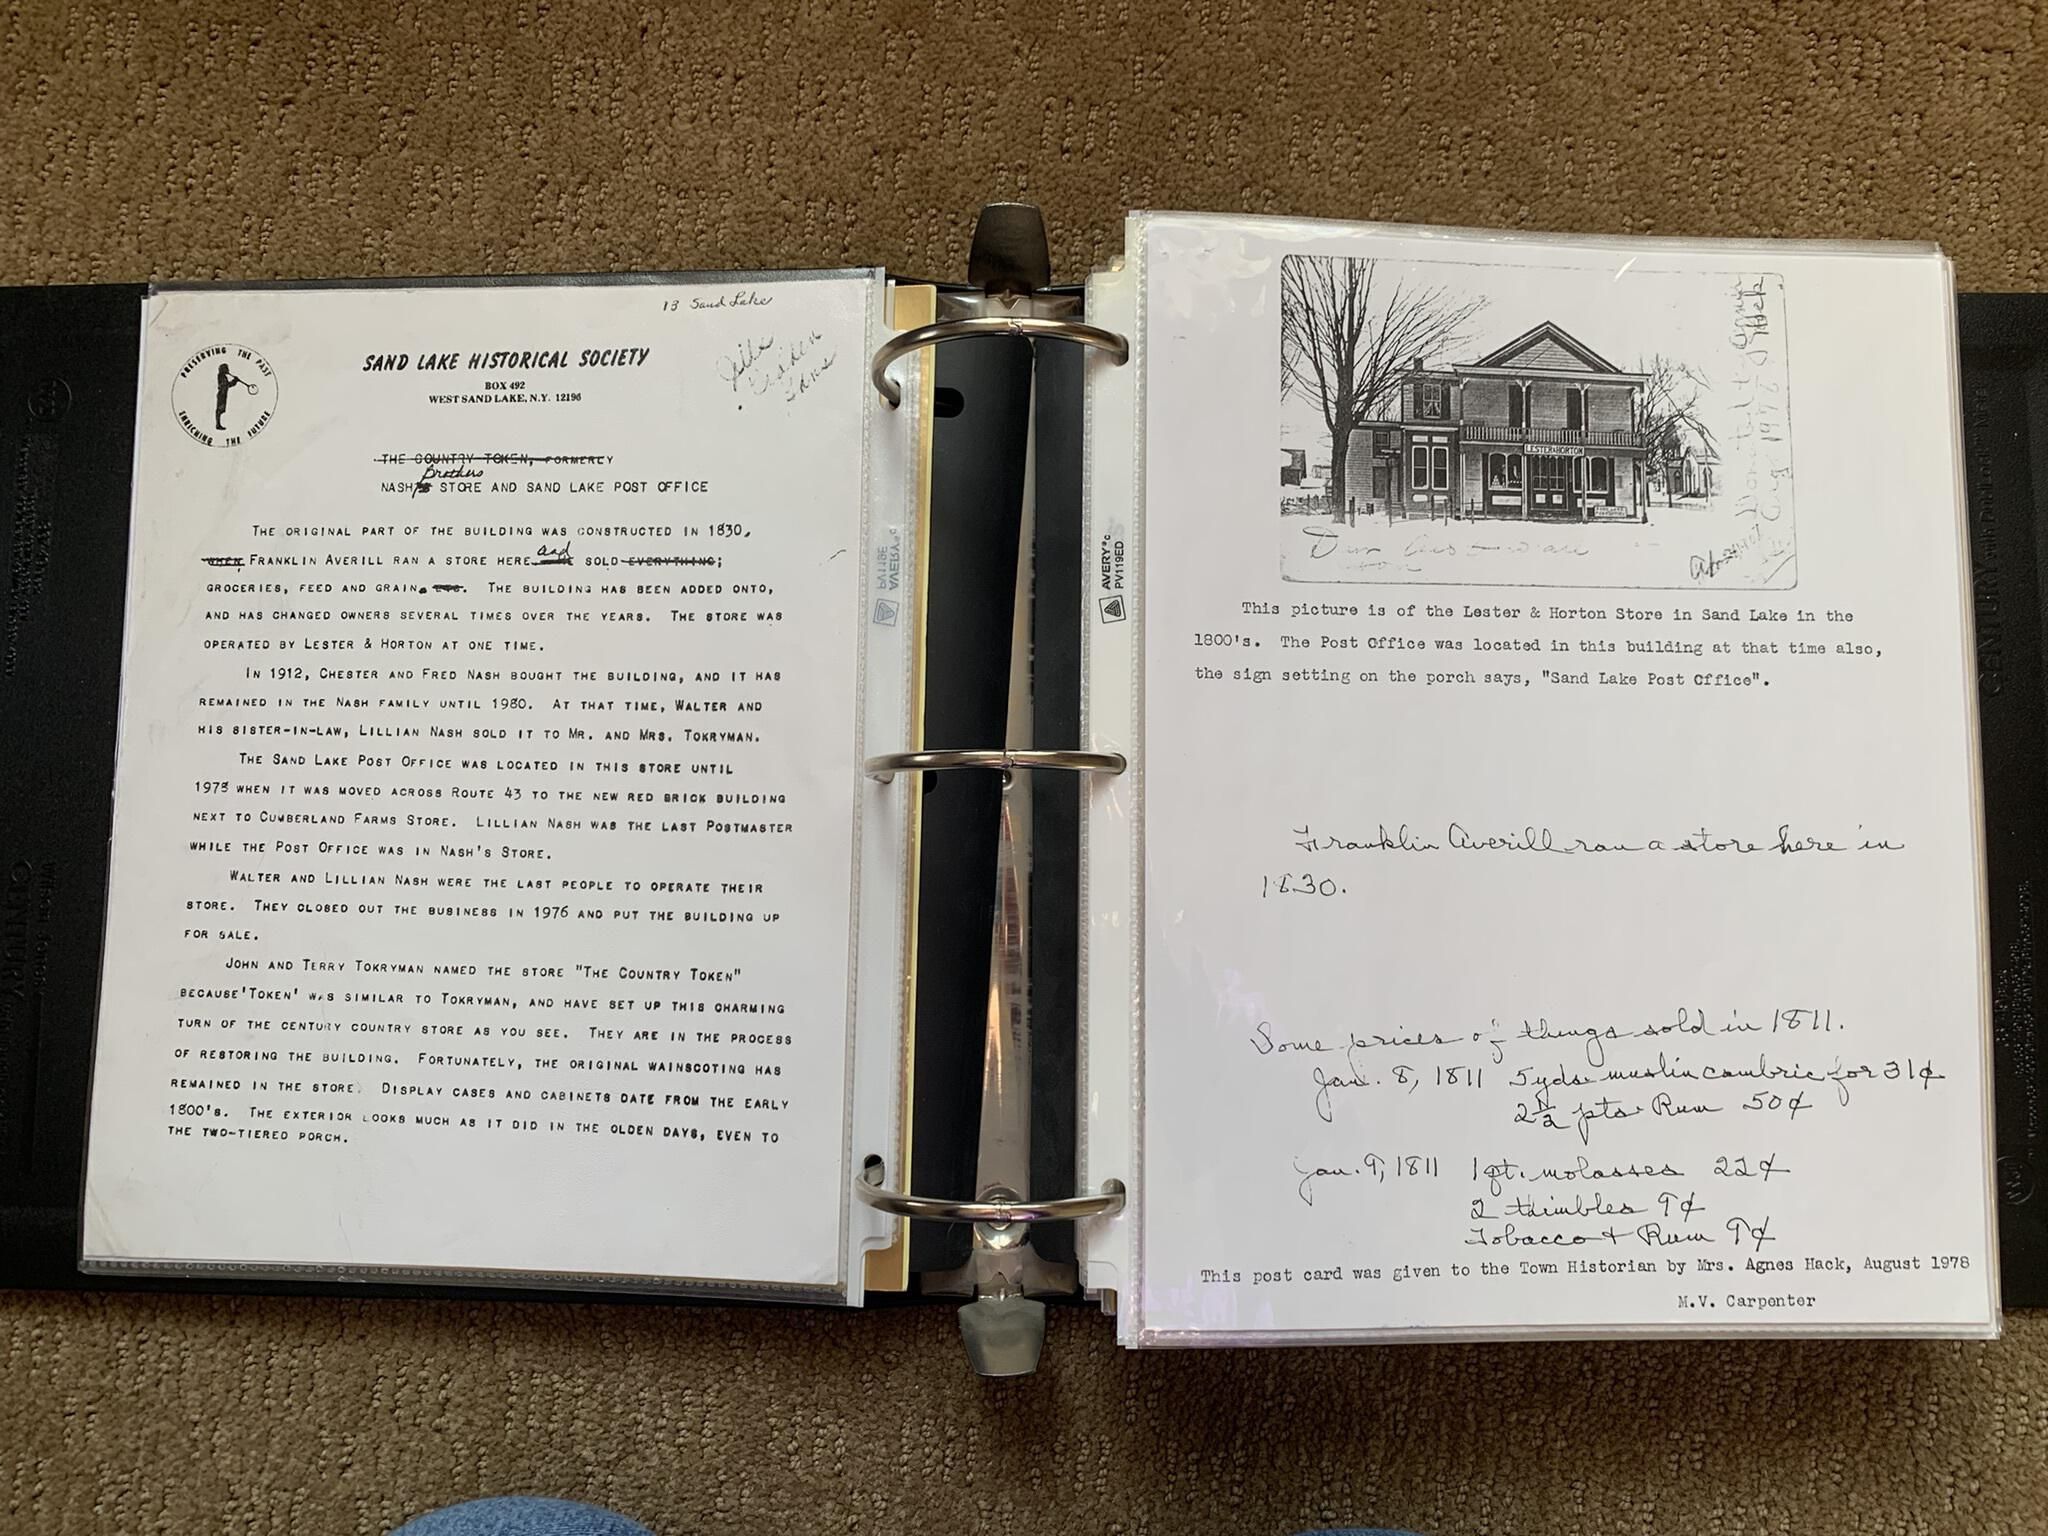 13 Sand Lake
PRESERVING THE PAST
ENRICHING THE FUTURE
SAND LAKE HISTORICAL SOCIETY
BOX 492
WEST SAND LAKE, N.Y. 12196
THE COUNTRY TOKEN, FORMERLY
Brothers
NASH'S STORE AND SAND LAKE POST OFFICE
THE ORIGINAL PART OF THE BUILDING WAS CONSTRUCTED IN 1830,
WHEN FRANKLIN AVERILL RAN A STORE HERE and SOLD EVERYTHING;
GROCERIES, FEED AND GRAIN. ETC. THE BUILDING HAS BEEN ADDED ONTO,
AND HAS CHANGED OWNERS SEVERAL TIMES OVER THE YEARS. THE STORE WAS
OPERATED BY LESTER & HORTON AT ONE TIME.
IN 1912, CHESTER AND FRED NASH BOUGHT THE BUILDING, AND IT HAS
REMAINED IN THE NASH FAMILY UNTIL 1980. AT THAT TIME, WALTER AND
HIS SISTER-IN-LAW, LILLIAN NASH SOLD IT TO MR. AND MRS. TOKRYMAN.
THE SAND LAKE POST OFFICE WAS LOCATED IN THIS STORE UNTIL
1973 WHEN IT WAS MOVED ACROSS ROUTE 43 TO THE NEW RED BRICK BUILDING
NEXT TO CUMBERLAND FARMS STORE. LILLIAN NASH WAS THE LAST POSTMASTER
WHILE THE POST OFFICE WAS IN NASH'S STORE.
WALTER AND LILLIAN NASH WERE THE LAST PEOPLE TO OPERATE THEIR
STORE. THEY CLOSED OUT THE BUSINESS IN 1976 AND PUT THE BUILDING UP
FOR SALE.
JOHN AND TERRY TOKRYMAN NAMED THE STORE "THE COUNTRY TOKEN"
BECAUSE 'TOKEN' WAS SIMILAR TO TOKRYMAN, AND HAVE SET UP THIS CHARMING
TURN OF THE CENTURY COUNTRY STORE AS YOU SEE. THEY ARE IN THE PROCESS
OF RESTORING THE BUILDING. FORTUNATELY, THE ORIGINAL WAINSCOTING HAS
REMAINED IN THE STORE. DISPLAY CASES AND CABINETS DATE FROM THE EARLY
1800'S. THE EXTERIOR LOOKS MUCH AS IT DID IN THE OLDEN DAYS, EVEN TO
THE TWO-TIERED PORCH.
AVERY®
PV119E
AVERY®
PV119ED
LESTER & HORTON
Agnes Hack
Aug 1978
This picture is of the Lester & Horton Store in Sand Lake in the
1800's. The Post Office was located in this building at that time also,
the sign setting on the porch says, "Sand Lake Post Office".
Franklin Averill ran a store here in
1830.
Some prices of things sold in 1811.
Jan. 8, 1811 5 yds muslin cambric for 31¢
2½ pts. Rum 50¢
Jan. 9, 1811 1 qt. molasses 22¢
2 thimbles 9¢
Tobacco + Rum 9¢
This post card was given to the Town Historian by Mrs. Agnes Hack, August 1978
M.V. Carpenter